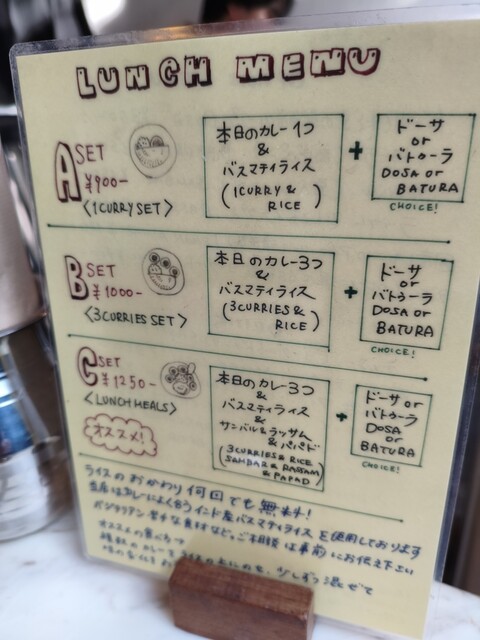 LUNCH MENU
A SET
¥900-
<1CURRY SET>
本日のカレー1つ
&
バスマティライス
(1CURRY &
RICE)
+
ドーサ
or
バトゥーラ
DOSA or
BATURA
CHOICE!
B SET
¥1000-
<3CURRIES SET>
本日のカレー3つ
&
バスマティライス
(3CURRIES &
RICE)
+
ドーサ
or
バトゥーラ
DOSA or
BATURA
CHOICE!
C SET
¥1250-
<LUNCH MEALS>
オススメ!
本日のカレー3つ
&
バスマティライス
&
サンバル&ラッサム
&パパド
(3CURRIES & RICE
SAMBAR & RASSAM
& PAPAD)
+
ドーサ or
バトゥーラ
DOSA
or
BATURA
CHOICE!
ライスのおかわり何回でも無料!
当店はカレーによく合うインド産バスマティライスを使用しております
ベジタリアン・苦手な食材など、ご相談は事前にお伝え下さい
オススメの食べ方
種類のカレーを 少しずつ混ぜて
味の変化を